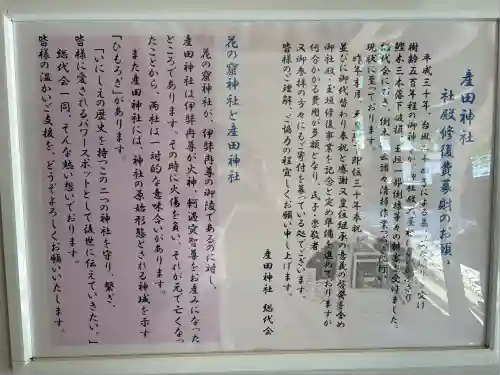 産田神社
社殿修復費募財のお願い
平成三十年、台風
樹齢五百年程の御神
鰹木三本落下破損、玉垣一部倒壊等々の被害を受けました。
総代会におき、倒木
現状に至っております。
昨年来月、天皇
即位三十年奉祝
並びに御代替わり奉祝と感謝又皇位継承の意義の啓発を含め
御社殿、玉垣修復事業を記念と定め準備を進めておりますが
何分かかる費用が多額となり、氏子・崇敬者
又御参拝の方々にもご寄付を募っている処でございます。
皆様のご理解、ご協力の程宜しくお願い申し上げます。
産田神社 総代会
花の窟神社と産田神社
花の窟神社が、伊弉冉尊の御陵であるのに対し、
産田神社は伊弉冉尊が火神、軻遇突智尊をお産みになった
ところであります。その時に火傷を負い、それが元で亡くなっ
たことから、両社は一対的な意味合いがあります。
また産田神社には、神社の原始形態とされる神域を示す
「ひもろぎ」があります。
「いにしえの歴史を持つこの二つの神社を守り、繋ぎ、
皆様に愛されるパワースポットとして後世に伝えていきたい。」
総代会一同、そんな熱い想いでおります。
皆様の温かいご支援を、どうぞよろしくお願いいたします。